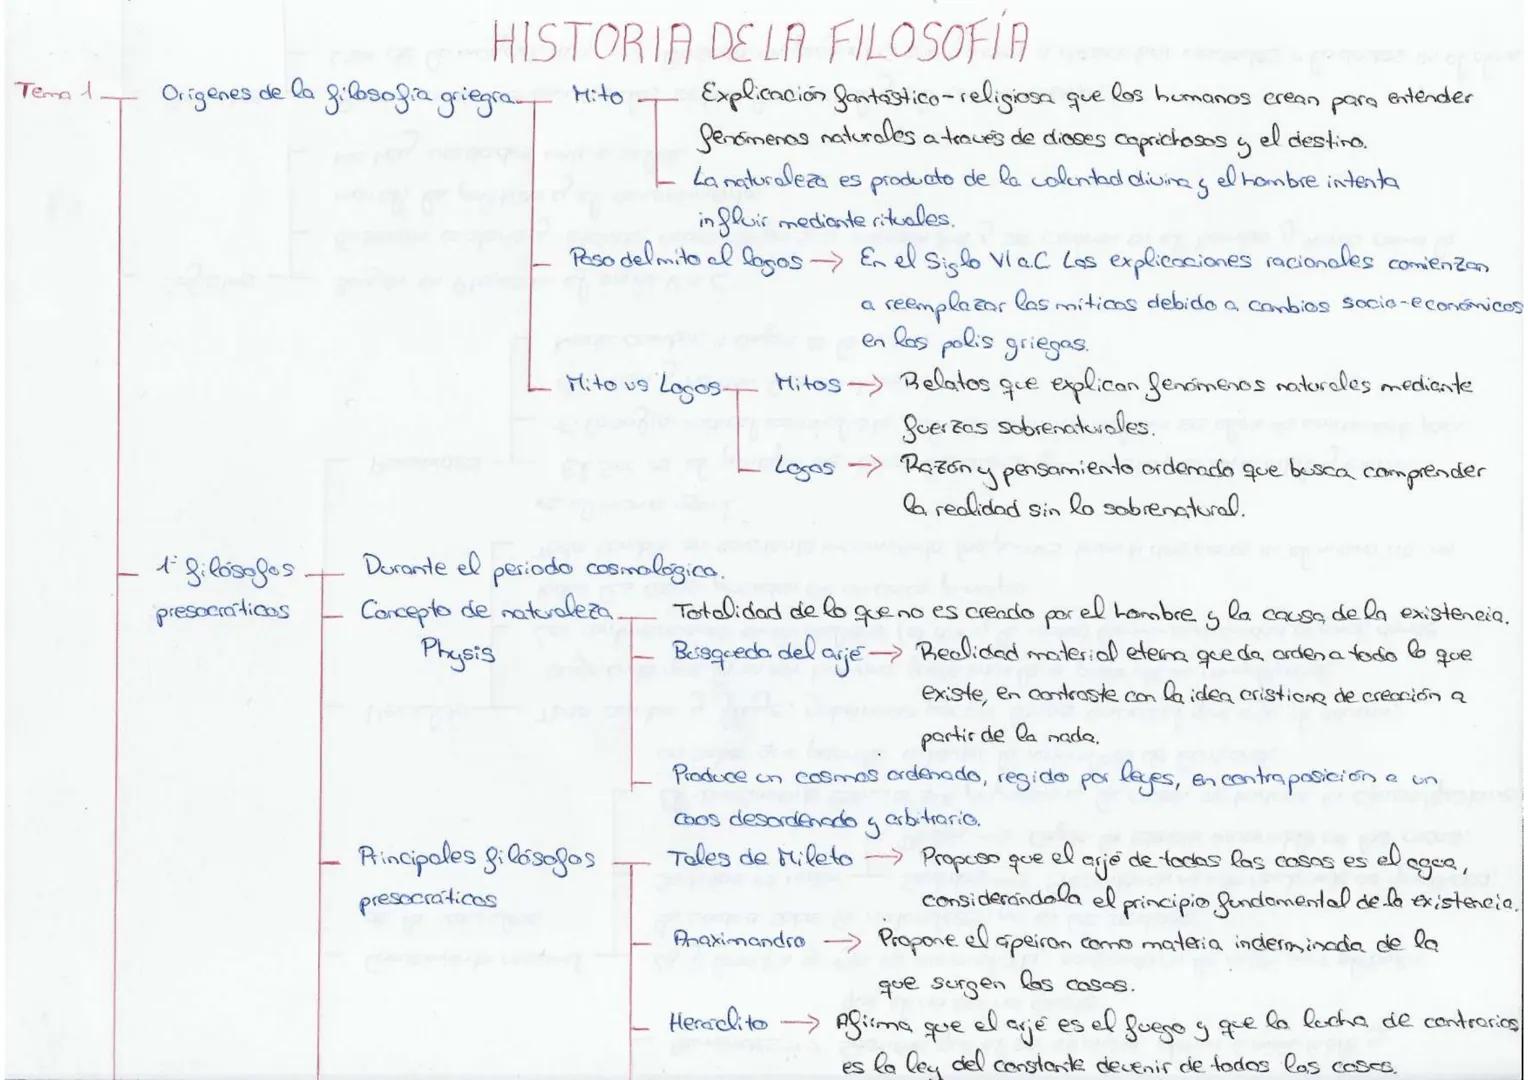 HISTORIA DE LA FILOSOFÍA
Tema 1
Orígenes de la filosofía griegra
Mito
Explicación fantástico-religiosa que los humanos crean para entender
fenómenos naturales a través de dioses caprichosos y el destino.
La naturaleza es producto de la voluntad divina y el hombre intenta
influir mediante rituales.
Paso del mito al logos → En el Siglo VI a.C Las explicaciones racionales comienzan
a reemplazar las míticas debido a cambios socio-económicos
en las polis griegas.
Mito vs Logos
Mitos → Relatos que explican fenómenos naturales mediante
fuerzas sobrenaturales.
Logos → Razón y pensamiento ordenado que busca comprender
la realidad sin lo sobrenatural.
1º filósofos
presocráticos
Durante el periodo cosmológico.
Concepto de naturaleza
Physis
Totalidad de lo que no es creado por el hombre y la causa de la existencia.
Búsqueda del arjé → Realidad material eterna que da orden a todo lo que
existe, en contraste con la idea cristiana de creación a
partir de la nada.
Produce un cosmos ordenado, regido por leyes, en contraposición a un
caos desordenado y arbitrario.
Principales filósofos
presocráticos
Tales de Mileto → Propuso que el arjé de todas las cosas es el agua,
considerándola el principio fundamental de la existencia.
Anaximandro → Propone el ápeiron como materia inderminada de la
que surgen las cosas.
Heráclito → Afirma que el arjé es el fuego y que la lucha de contrarios
es la ley del constante devenir de todas las cosas.